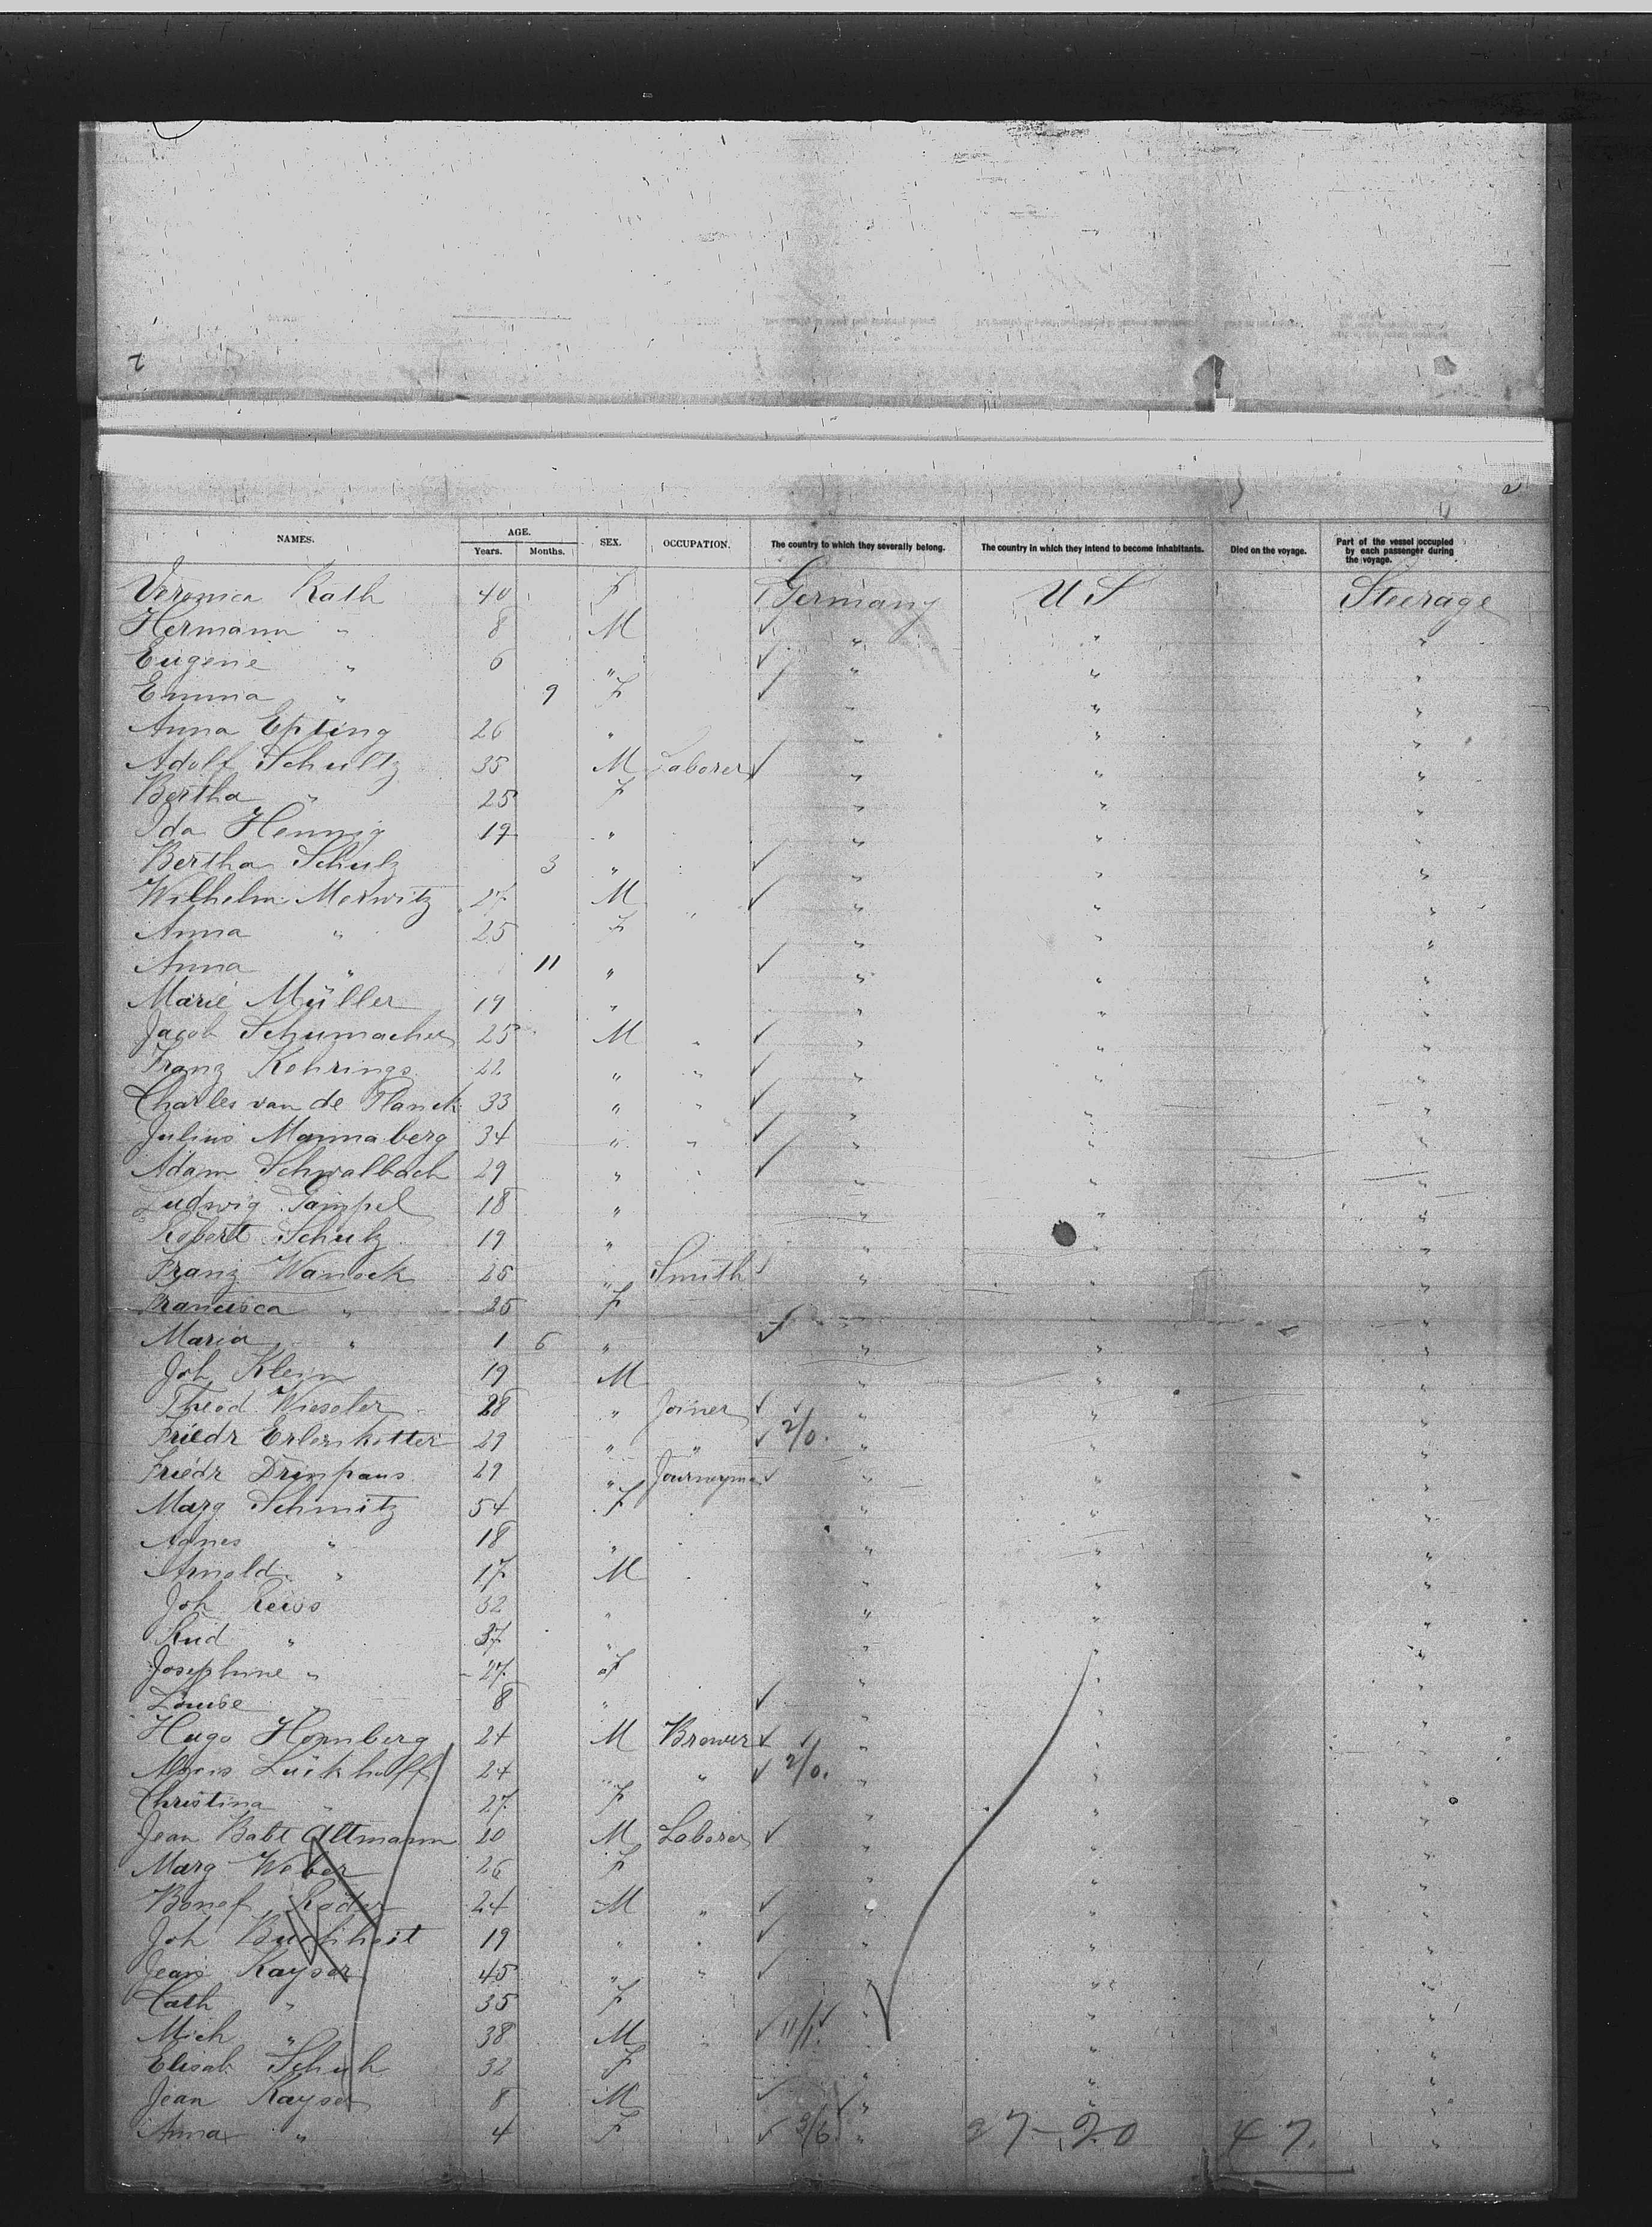 2
NAMES. AGE. Years. Months. SEX. OCCUPATION. The country to which they severally belong. The country in which they intend to become inhabitants. Died on the voyage. Part of the vessel occupied by each passenger during the voyage.
Veronica Rath 40 F Germany U S Steerage
Hermann " 8 M " " "
Eugene " 6 " " " "
Emma " 9 F " " "
Anna Epting 26 " " " "
Adolf Schultz 35 M Laborer " " "
Bertha " 25 F " " "
Ida Hennig 19 " " " "
Bertha Schulz 3 " " " "
Wilhelm Merwitz 27 M " " " "
Anna " 25 F " " "
Anna " 11 " " " "
Marie Müller 19 " " " "
Jacob Schumacher 25 M " " " "
Franz Kehrings 22 " " " " "
Charles van de Planck 33 " " " " "
Julius Mannaberg 34 " " " " "
Adam Schwalbach 29 " " " " "
Ludwig 18 " " " "
Robert Schulz 19 " " " "
Franz Wanoek 25 " Smith " " "
Francisca " 25 F " " "
Maria " 1 6 " " " "
Joh Klein 19 M " " "
Theod Wieseler 28 " Joiner " " "
Friedr 29 " " 2/0. " " "
Friedr Drimpaus 29 " Journeyma " " "
Marg Schmitz 54 F " " "
Agnes " 18 " " " "
Arnold " 17 M " " "
Joh Reiss 32 " " " "
Rud " 37 " " " "
Josephine " 27 F " " "
Louise " 8 " " " "
Hugo Homberg 24 M Brewer " " "
Lückhoff 24 " " 2/0. " " "
Christina " 27 F " " "
Jean Babt Altmann 20 M Laborer " " "
Marg Weber 26 F " " "
Roder 24 M " " " "
Joh Buchheit 19 " " " " "
Jean Kayser 45 " " " " "
Cath " 35 F " " "
Mich " 38 M 11/1. " " "
Elisab Schuh 32 F " " "
Jean Kayser 8 M " " "
Anna " 4 F 3/6 " 27-20 47. "